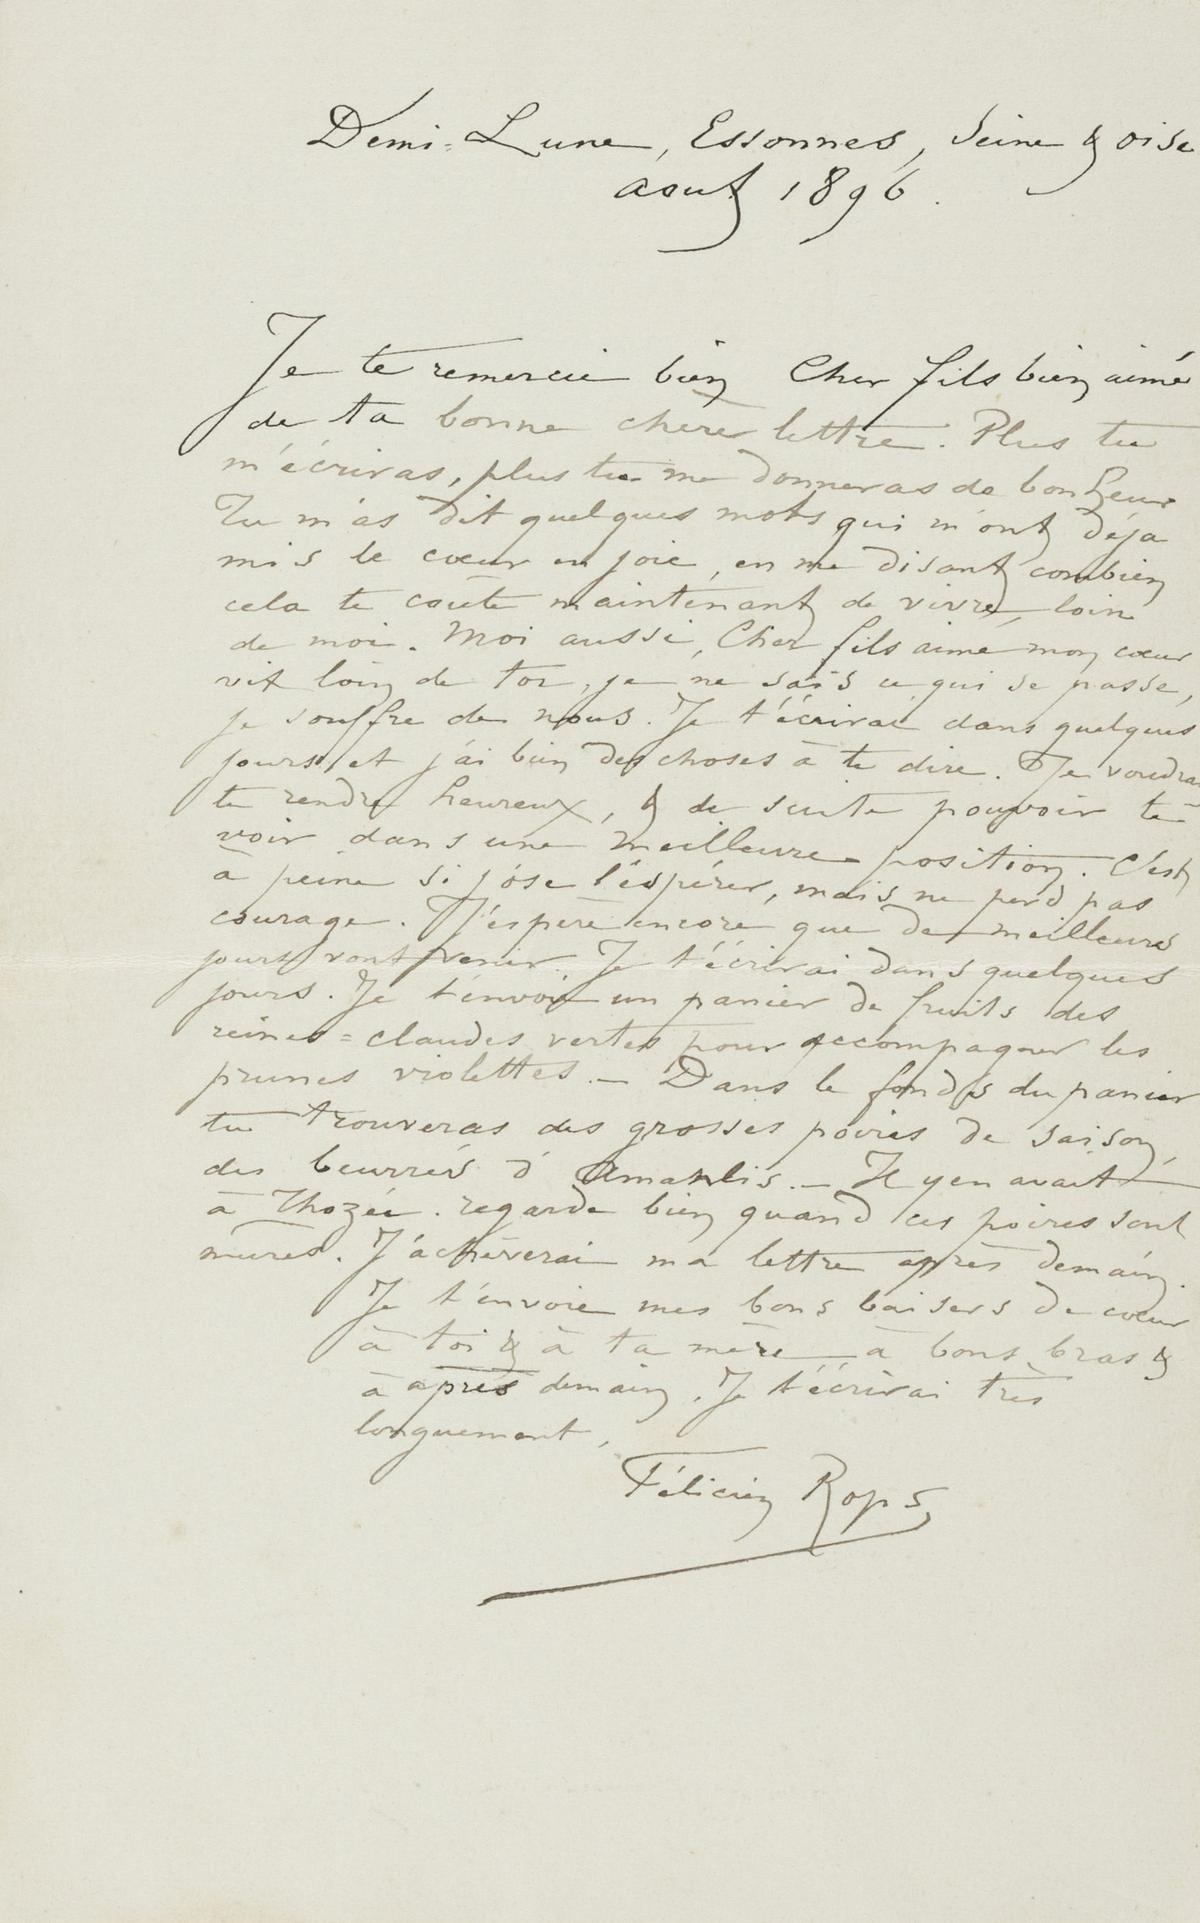 Demi-Lune, Essonnes, Seine & oise
aout 1896.
Je te remercie bien Cher fils bien aimé
de ta bonne chère lettre. Plus tu
m'écriras, plus tu me donneras de bonheur
Tu m'as dit quelques mots qui m'ont déja
mis le cœur en joie, en me disant combien
cela te coûte maintenant de vivre loin
de moi. Moi aussi, Cher fils aimé mon cœur
vit loin de toi, je ne sais ce qui se passe,
je souffre de nous. Je t'écrirai dans quelques
jours, et j'ai bien des choses à te dire. Je voudrai
te rendre heureux, & de suite pouvoir te
voir dans une meilleure position. C'est
à peine si j'ose l'espérer, mais ne perd pas
courage. J'espère encore que de meilleurs
jours vont venir. Je t'écrirai dans quelques
jours. Je t'envoie un panier de fruits des
reines=claudes vertes pour accompagner les
prunes violettes. — Dans le fonds du panier
tu trouveras des grosses poires de saison,
des beurrés d'Amanlis. — Il y en avait
à Thozée. regarde bien quand ces poires sont
mûres. J'achèverai ma lettre après demain.
Je t'envoie mes bons baisers de cœur
à toi & à ta mère à bons bras &
à après demain. Je t'écrirai très
longuement,
Félicien Rops